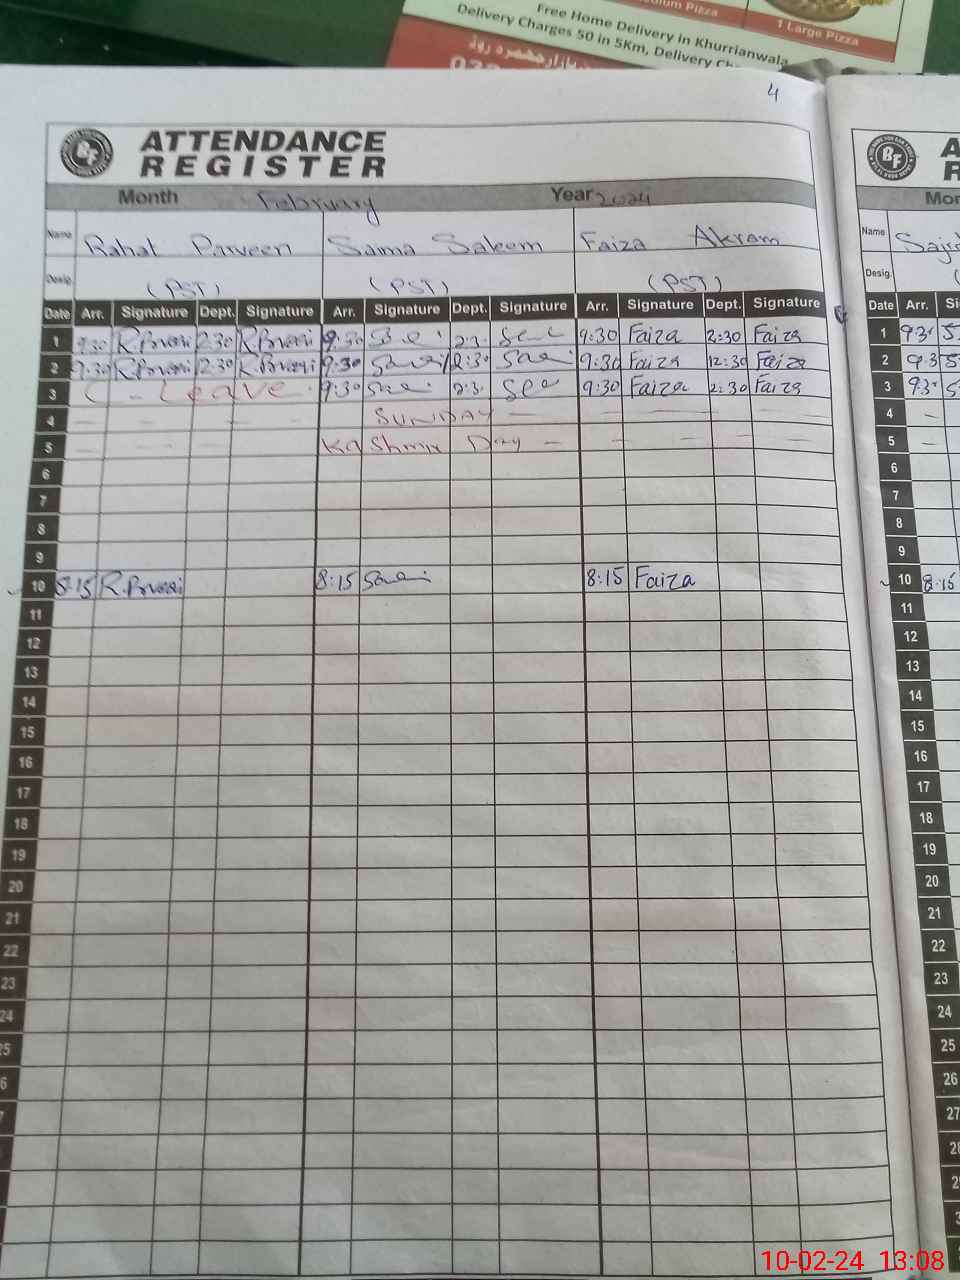 Medium Pizza
1 Large Pizza
Free Home Delivery in Khurrianwala
Delivery Charges 50 in 5Km, Delivery
4
ATTENDANCE
REGISTER
BF
Month February Year 2024
Name Rahat Parveen Saima Saleem Faiza Akram
Desig. (PST) (PST) (PST)
Date Arr. Signature Dept. Signature Arr. Signature Dept. Signature Arr. Signature Dept. Signature
1 9:30 R.Parveen 2:30 R.Parveen 9:30 2:30 9:30 Faiza 2:30 Faiza
2 9:30 R.Parveen 12:30 R.Parveen 9:30 12:30 9:30 Faiza 12:30 Faiza
3 C - Leave 9:30 2:30 9:30 Faiza 2:30 Faiza
4 — — — — SUNDAY — — — — —
5 — — — — Kashmir Day — — — — —
6
7
8
9
10 8:15 R.Parveen 8:15 8:15 Faiza
11
12
13
14
15
16
17
18
19
20
21
22
23
24
25
BF
A
R
Mon
Name Sajid
Desig.
Date Arr. Si
1 9:3
2 9:3
3 9:3
4 —
5 —
6
7
8
9
10 8:15
11
12
13
14
15
16
17
18
19
20
21
22
23
24
25
26
27
28
10-02-24 13:08